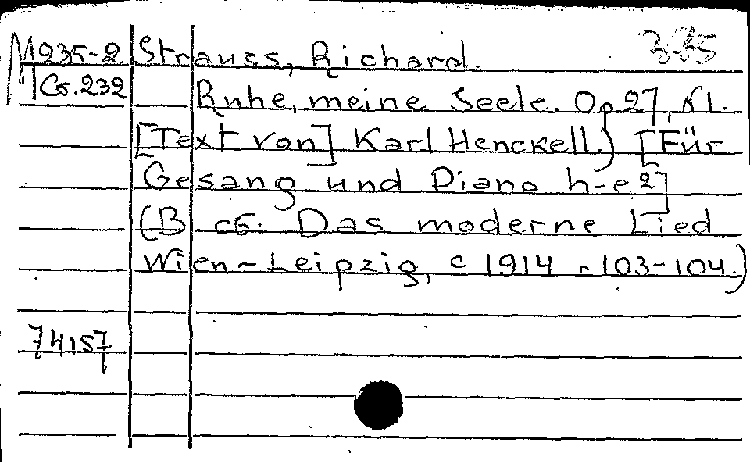 M 935-2 Strauss, Richard. 3-35
Сб.232 Ruhe, meine Seele. Op 27, №1.
[Text von] Karl Henckell.) [Für
Gesang und Piano h-e²]
(В сб. Das moderne Lied
Wien-Leipzig, c 1914 с 103-104.)
74157